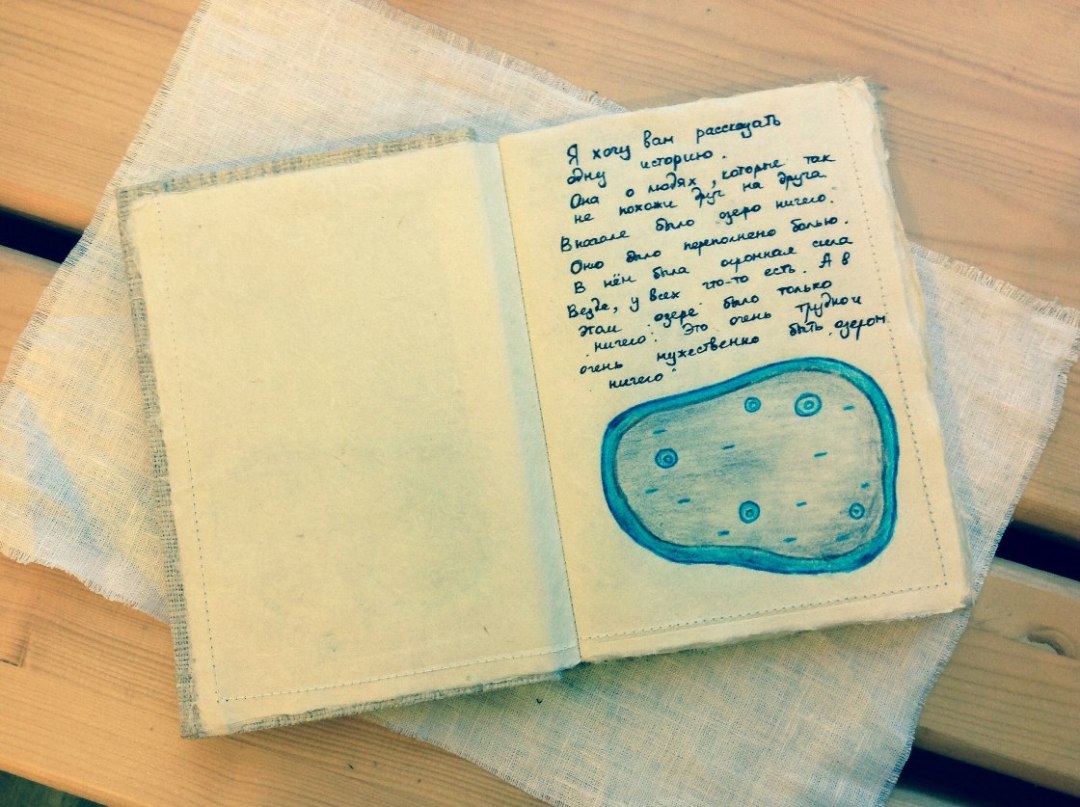 Я хочу вам рассказать
одну историю.
Она о людях, которые так
не похожи друг на друга
Вначале было озеро ничего.
Оно было переполнено болью.
В нём была огромная сила
Везде, у всех что-то есть. А в
этом озере было только
ничего. Это очень трудно и
очень мужественно быть озером
ничего"